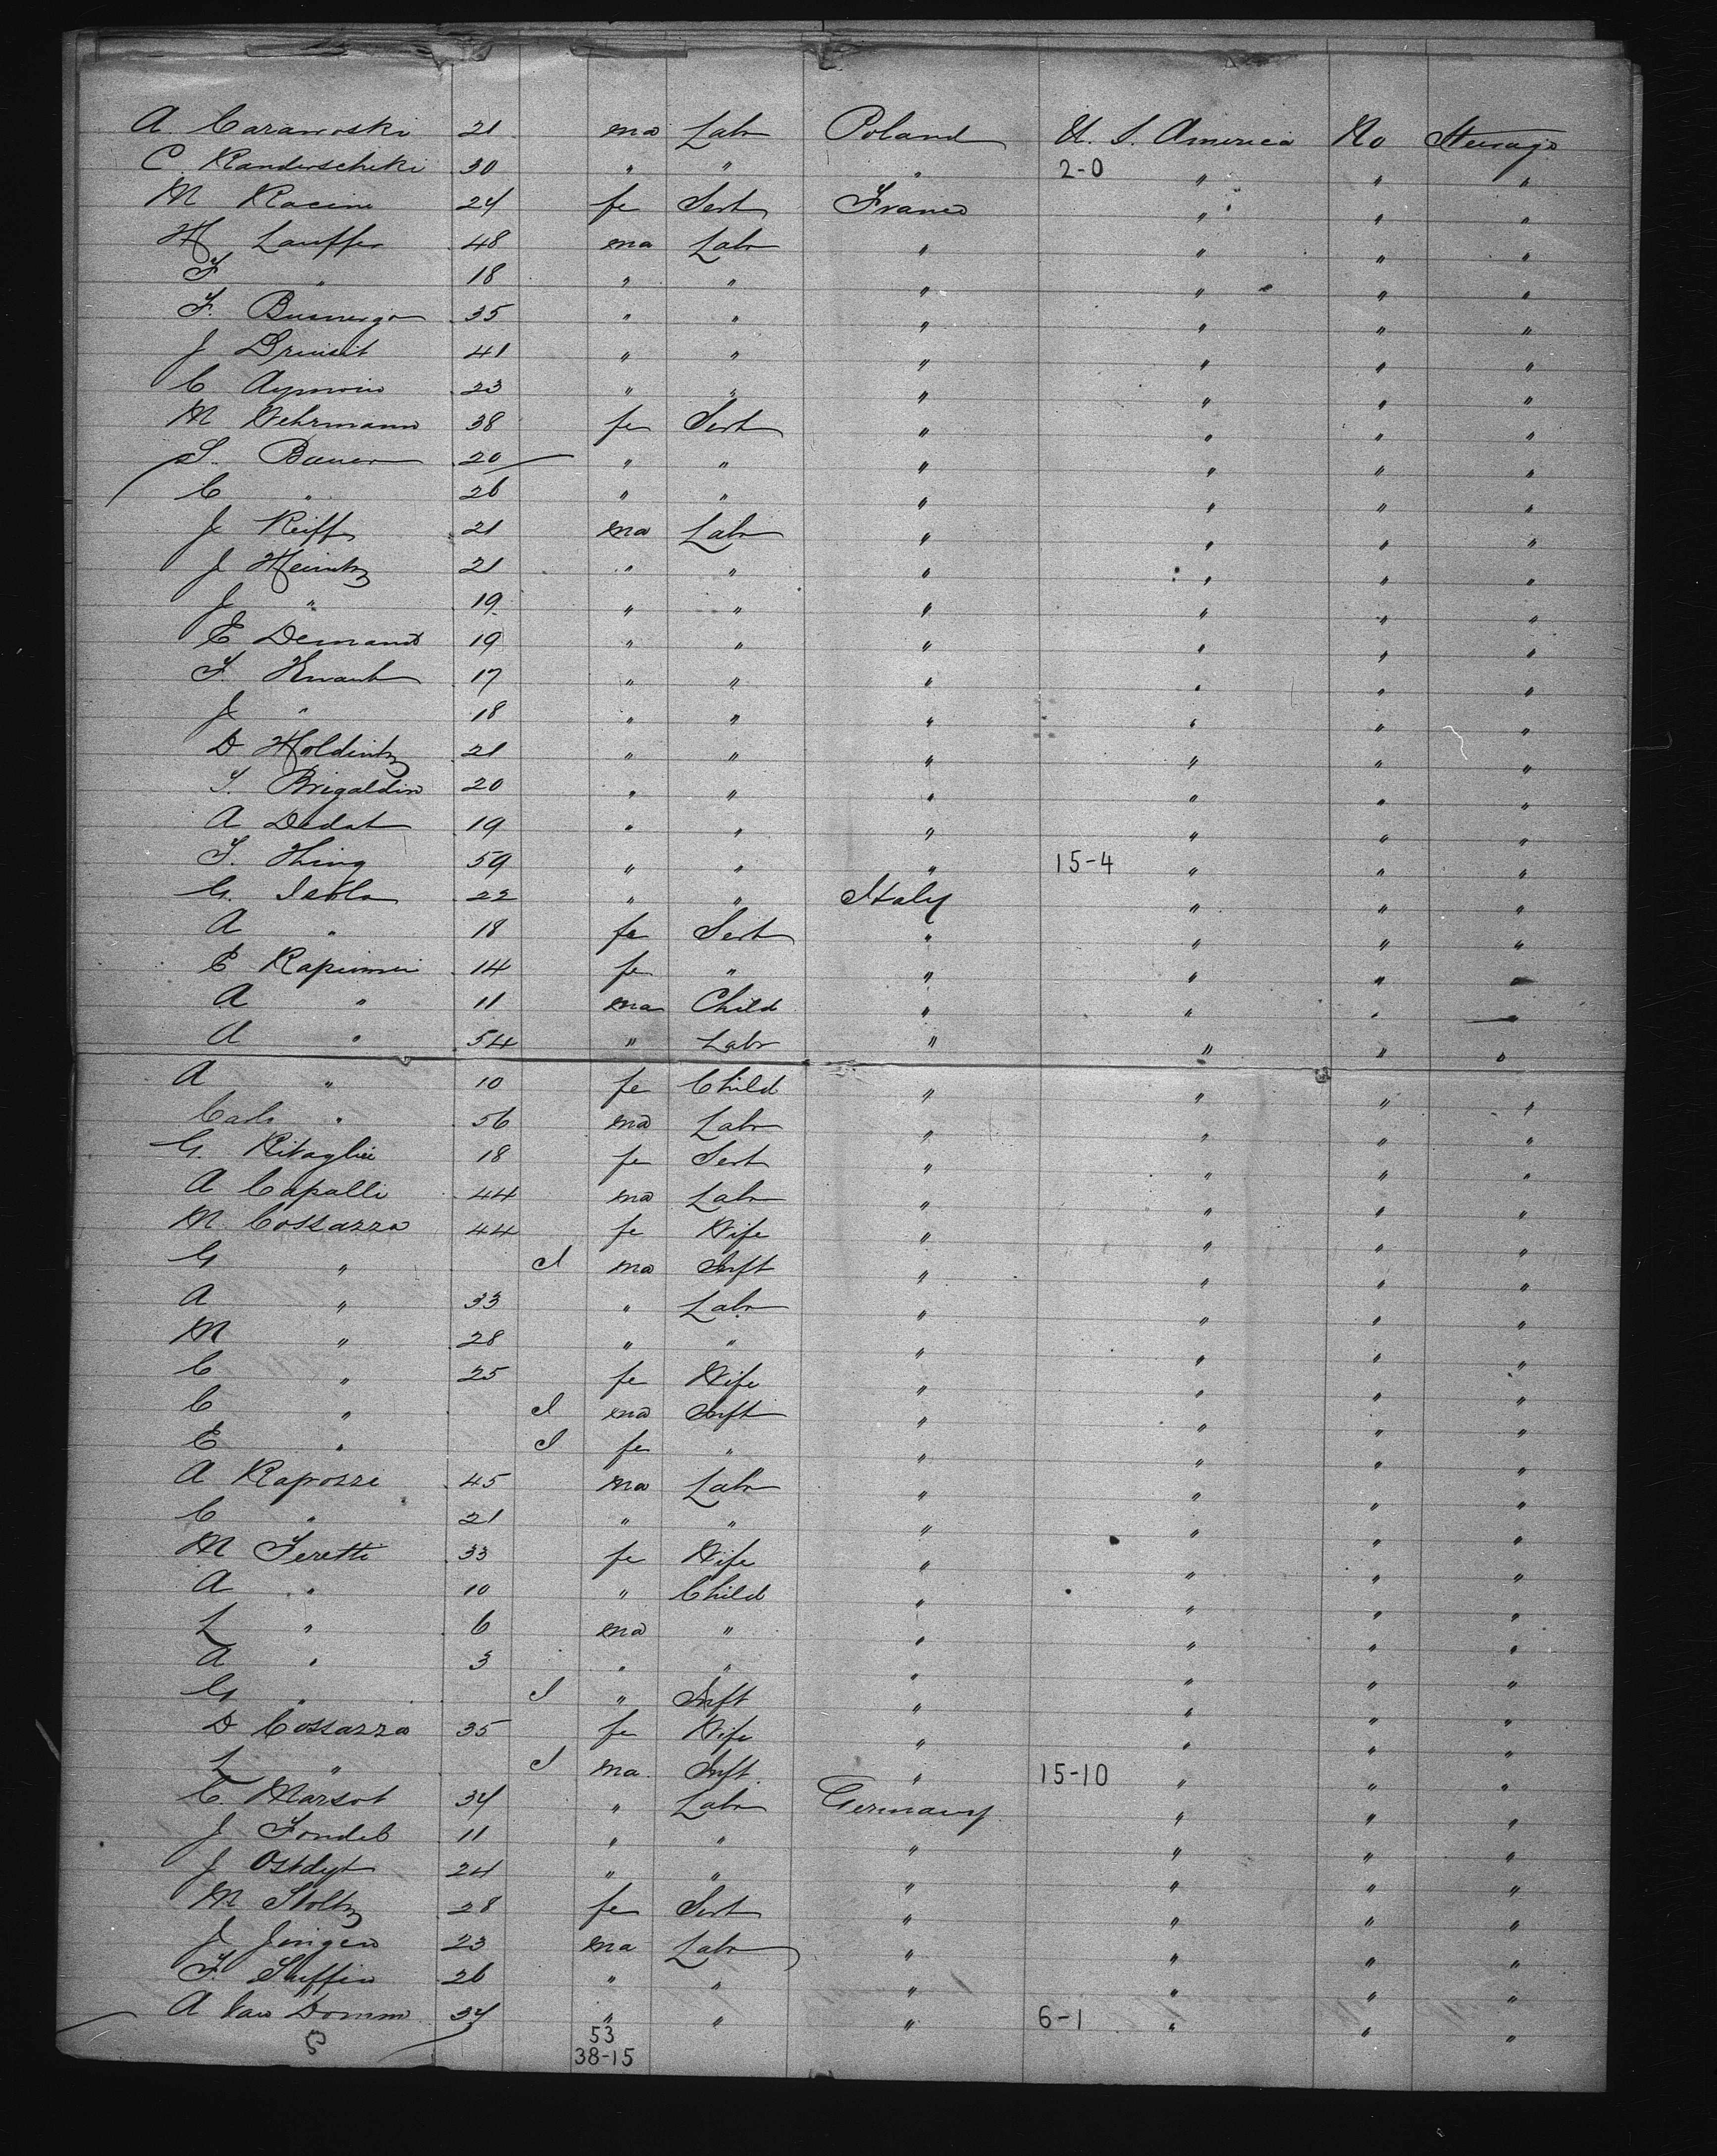 A Caranoski 21 ma Labr Poland U. S. America No Steerage
C. Randerscheki 30 " " " 2-0 " " "
M Racine 24 fe Sert France " " "
H Lauffer 48 ma Labr " " " "
F " 18 " " " " " "
F. 35 " " " " " "
J 41 " " " " " "
C 23 " " " " " "
M Wehrmann 38 fe Sert " " " "
S. Bauer 20 " " " " " "
C " 26 " " " " " "
J Reiff 21 ma Labr " " " "
J Heintz 21 " " " " " "
J " 19 " " " " " "
E Demand 19 " " " " " "
F. 17 " " " " " "
J " 18 " " " " " "
D Holdintz 21 " " " " " "
S. Brigaldin 20 " " " " " "
A Dedat 19 " " " " " "
59 " " " 15-4 " " "
G. 22 " " Italy " " "
A " 18 fe Sert " " " "
E 14 fe " " " " "
A " 11 ma Child " " "
A " 54 " Labr " " " "
A " 10 fe Child " " " "
" 56 ma Labr " " " "
G. Ritaglie 18 fe Sert " " " "
A Capalli 44 ma Labr " " " "
M. Cossazza 44 fe Wife " " " "
G " I ma Inft " " " "
A " 33 " Labr " " " "
M " 28 " " " " " "
C " 25 fe Wife " " " "
C " I ma Inft " " " "
E " I fe " " " " "
A Rapozzi 45 ma Labr " " " "
C " 21 " " " " " "
M Feretti 33 fe Wife " " " "
A " 10 " Child " " " "
L " 6 ma " " " " "
A " 3 " " " " " "
G " I " Inft " " " "
D Cossazza 35 fe Wife " " " "
L " I ma Inft. " 15-10 " " "
C. Marsot 34 " Labr Germany " " "
J Fondel 11 " " " " " "
J Ostdyt 24 " " " " " "
M Stoltz 28 fe Sert " " " "
J Jingen 23 ma Labr " " " "
F. Steffin 26 " " " " " "
A Van Domm 34 " " " 6-1 " " "
53
38-15